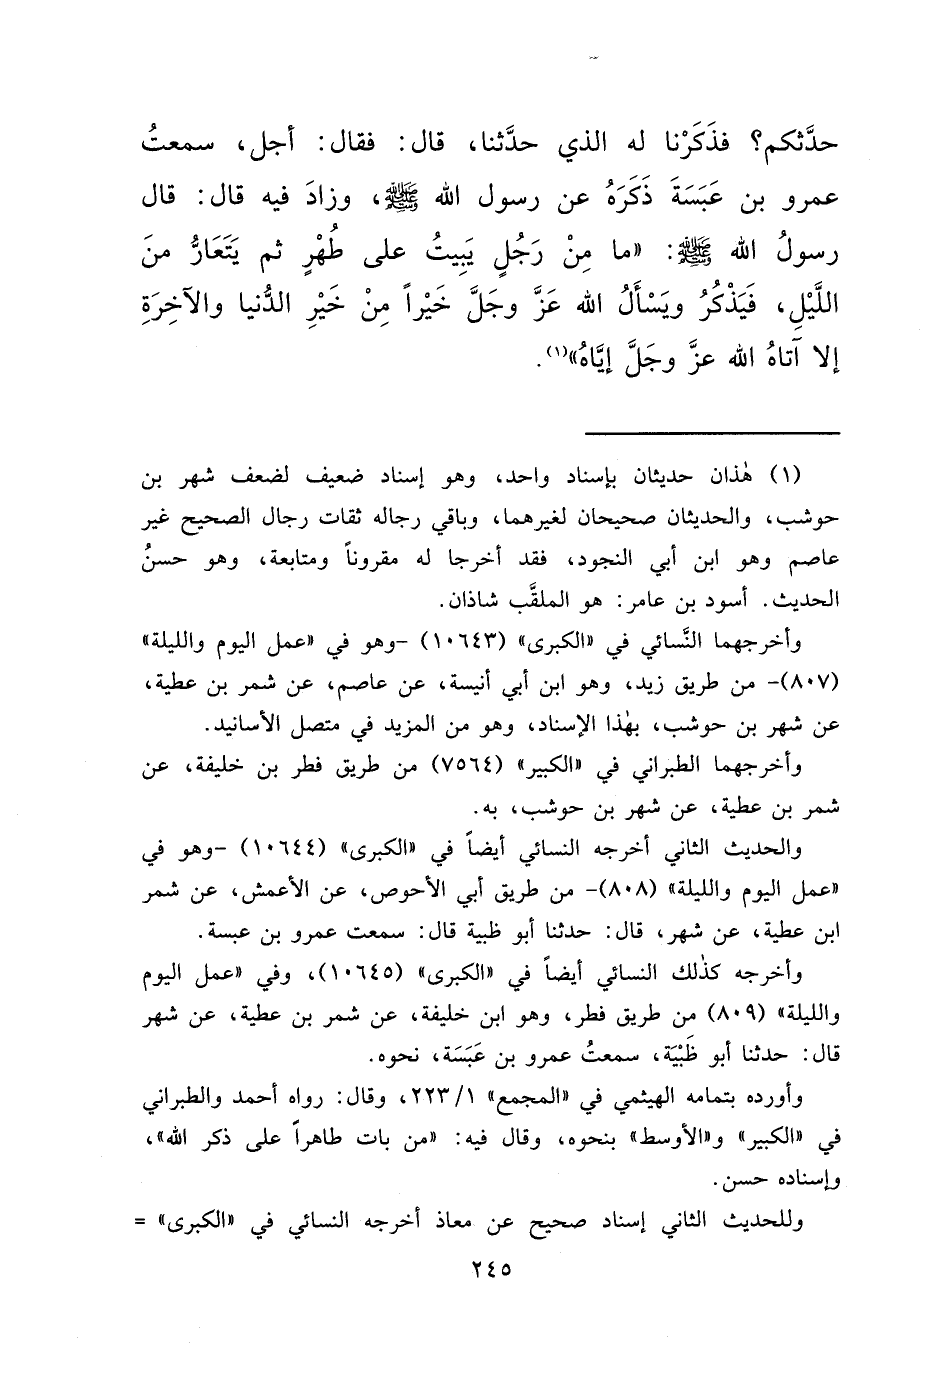 حدَّثكم؟ فذَكَرْنا له الذي حدَّثنا، قال: فقال: أجل، سمعتُ
عمرو بن عَبَسَةَ ذَكَرَهُ عن رسول الله ﷺ، وزادَ فيه قال: قال
رسولُ الله ﷺ: «ما مِنْ رَجُلٍ يَبِيتُ على طُهْرٍ ثم يَتَعَارُّ منَ
اللَّيْلِ، فَيَذْكُرُ ويَسْأَلُ الله عَزَّ وجَلَّ خَيْراً مِنْ خَيْرِ الدُّنيا والآخِرَةِ
إلا آتاهُ الله عزَّ وجَلَّ إيَّاهُ»(١).
(١) هٰذان حديثان بإسناد واحد، وهو إسناد ضعيف لضعف شهر بن
حوشب، والحديثان صحيحان لغيرهما، وباقي رجاله ثقات رجال الصحيح غير
عاصم وهو ابن أبي النجود، فقد أخرجا له مقروناً ومتابعة، وهو حسنُ
الحديث. أسود بن عامر: هو الملقَّب شاذان.
وأخرجهما النَّسائي في «الكبرى» (١٠٦٤٣) -وهو في «عمل اليوم والليلة»
(٨٠٧)- من طريق زيد، وهو ابن أبي أنيسة، عن عاصم، عن شمر بن عطية،
عن شهر بن حوشب، بهٰذا الإسناد، وهو من المزيد في متصل الأسانيد.
وأخرجهما الطبراني في «الكبير» (٧٥٦٤) من طريق فطر بن خليفة، عن
شمر بن عطية، عن شهر بن حوشب، به.
والحديث الثاني أخرجه النسائي أيضاً في «الكبرى» (١٠٦٤٤) -وهو في
«عمل اليوم والليلة» (٨٠٨)- من طريق أبي الأحوص، عن الأعمش، عن شمر
ابن عطية، عن شهر، قال: حدثنا أبو ظبية قال: سمعت عمرو بن عبسة.
وأخرجه كذٰلك النسائي أيضاً في «الكبرى» (١٠٦٤٥)، وفي «عمل اليوم
والليلة» (٨٠٩) من طريق فطر، وهو ابن خليفة، عن شمر بن عطية، عن شهر
قال: حدثنا أبو ظَبْيَة، سمعتُ عمرو بن عَبَسَة، نحوه.
وأورده بتمامه الهيثمي في «المجمع» ٢٢٣/١، وقال: رواه أحمد والطبراني
في «الكبير» و«الأوسط» بنحوه، وقال فيه: «من بات طاهراً على ذكر الله»،
وإسناده حسن.
وللحديث الثاني إسناد صحيح عن معاذ أخرجه النسائي في «الكبرى» =
٢٤٥